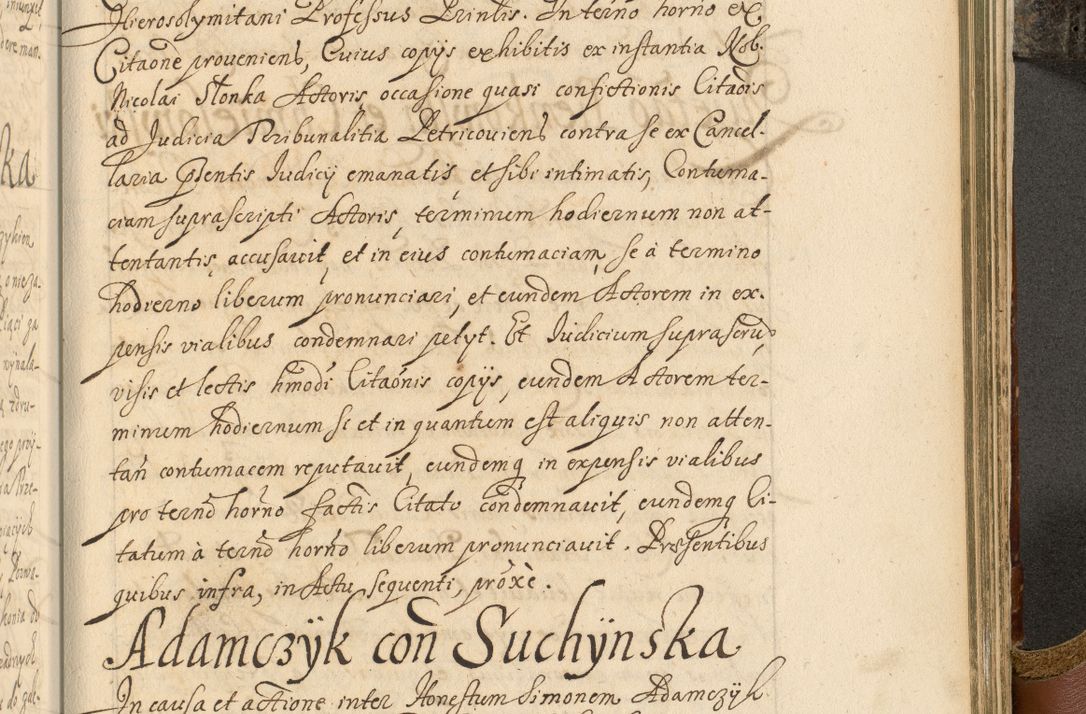 Hierosolymitani Professus Printis. In terno horno ex
Citaone proveniens, Cuius copijs exhibitis ex instantia Nob.
Nicolai Słonka Actoris, occasione quasi confictionis Citaōis
ad Judicia Tribunalitia Petricoviens contra se ex Cancel-
laria Pdentis Iudicij emanatis, et sibi intimatis, Contuma-
ciam suprascripti Actoris, terminum hodiernum non at-
tentantis, accusavit, et in eius contumaciam, se à termino
hodierno liberum pronunciari, et eundem Actorem in ex-
pensis vialibus condemnari petyt. Et Iudicium suprascrü,
visis et lectis hmōdi Citaōnis copijs, eundem Actorem ter-
minum hodiernum si et in quantum est aliquis non atten-
tañ contumacem reputavit, eundemq in expensis vialibus
pro ternō horno factis Citato condemnavit, eundemq Ci-
tatum à ternō horno liberum pronunciavit. Præsentibus
quibus infra, in Actu sequenti, proxe.
Adamczÿk coñ Suchÿnska
In causa et actione inter Honestum Simonem Adamczÿk